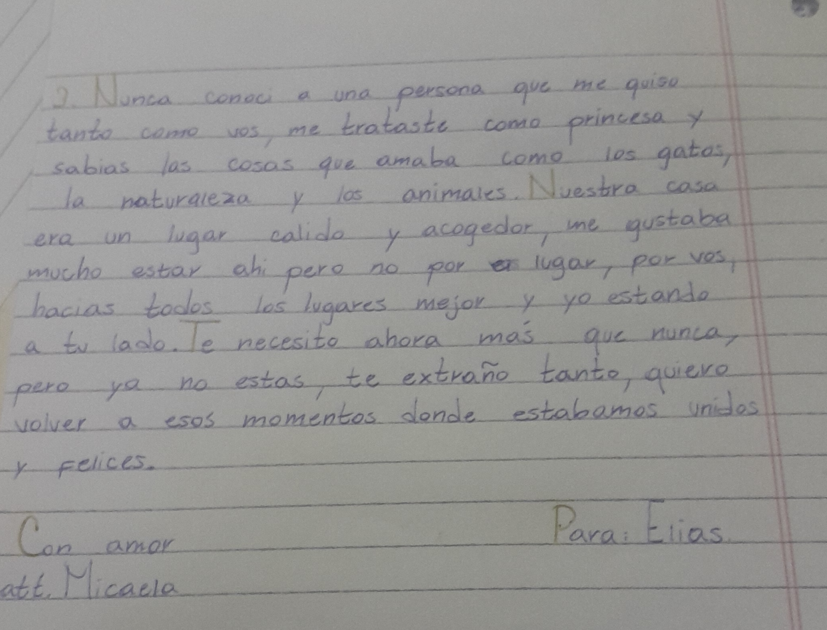 2. Nunca conoci a una persona que me quiso
tanto como vos, me trataste como princesa y
sabias las cosas que amaba como los gatos,
la naturaleza y los animales. Nuestra casa
era un lugar calido y acogedor, me gustaba
mucho estar ahi pero no por lugar, por vos,
hacias todos los lugares mejor y yo estando
a tu lado. Te necesito ahora más que nunca,
pero ya no estas, te extraño tanto, quiero
volver a esos momentos donde estabamos unidos
y felices.
Con amor
Para: Elias.
att. Micaela